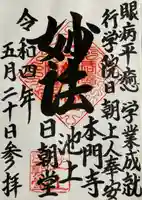 眼病平癒 学業成就
行学院日朝上人奉安
妙法
池上
本門寺
日朝堂
令和四年
五月二十日参拝